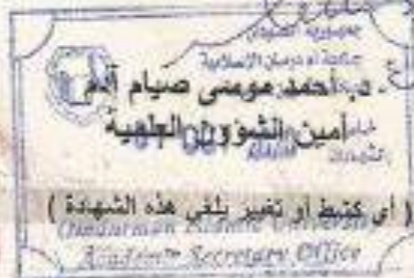 جمهورية السودان
جامعة أم درمان الإسلامية
د. أحمد موسى صيام آدم
أمين الشؤون العلمية
( أي كشط أو تغيير يلغي هذه الشهادة )
Omdurman Islamic University
Academic Secretary Office